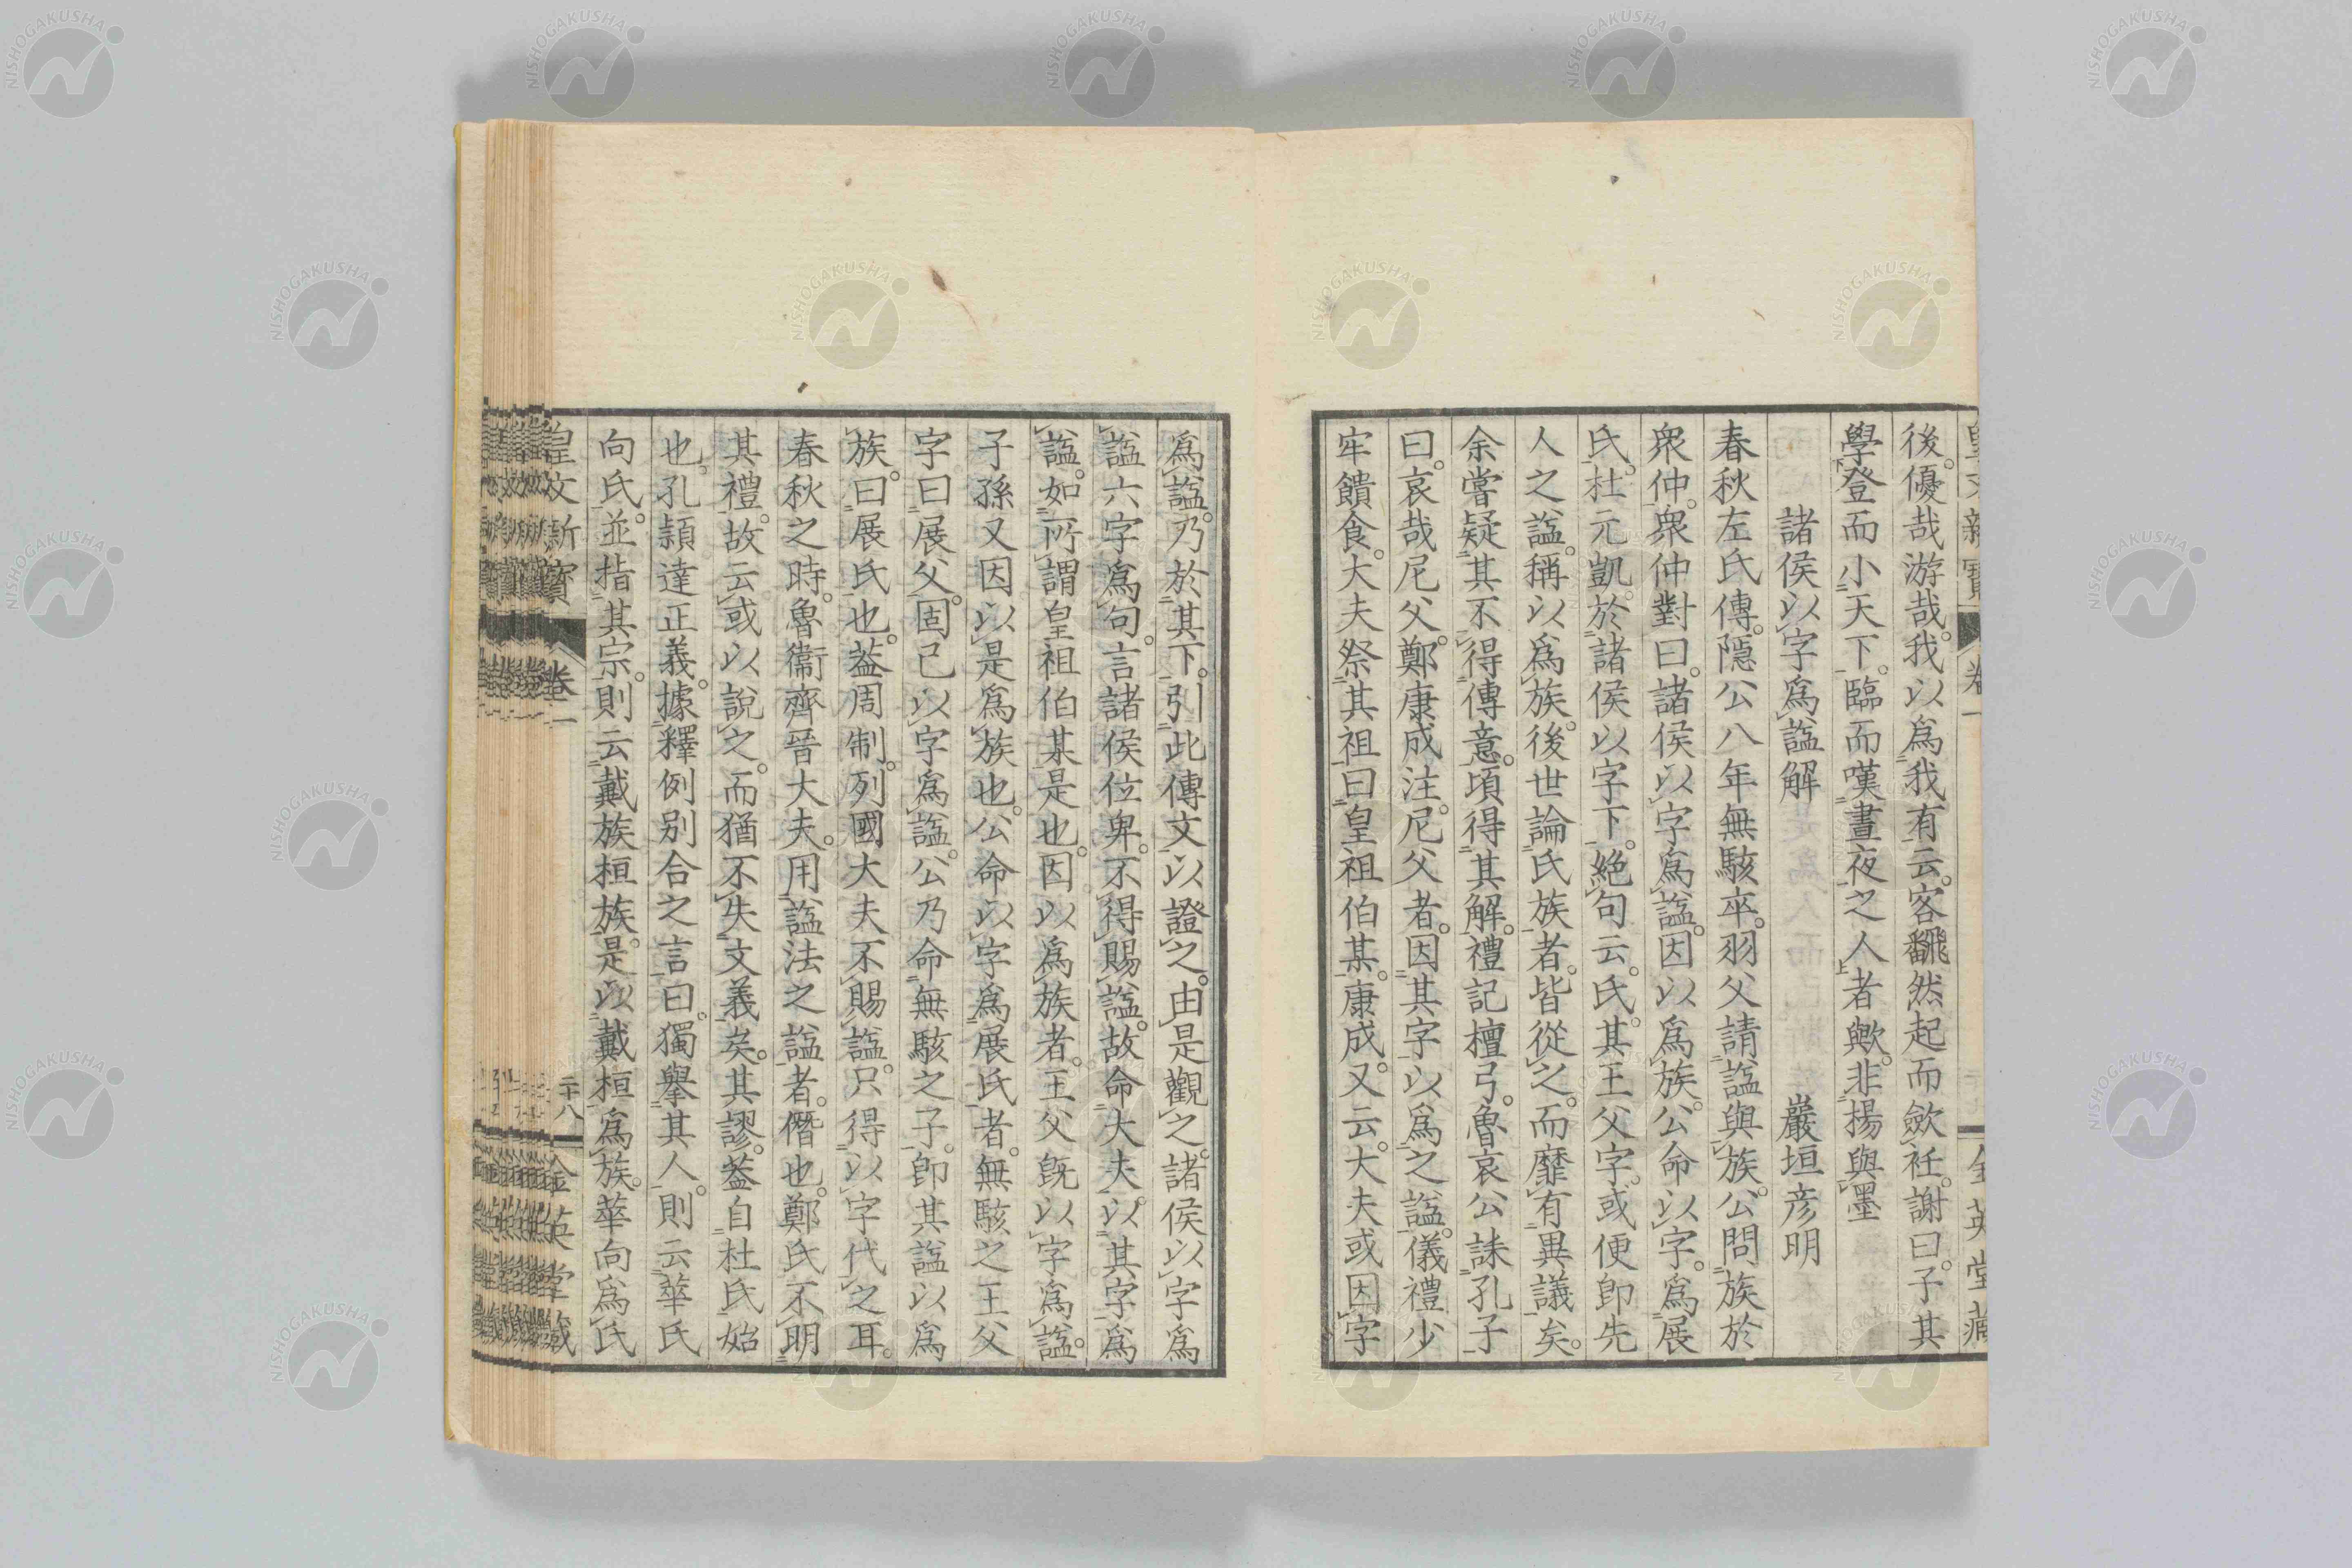 後。優哉游哉。我以爲我有云。客飜然起而斂衽。謝曰。子其
學登而小天下。臨而嘆晝夜之人者歟。非揚與墨
諸侯以字爲謚解 巖垣彦明
春秋左氏傳。隱公八年無駭卒。羽父請謚與族。公問族於
衆仲。衆仲對曰。諸侯以字爲謚。因以爲族。公命以字。爲展
氏。杜元凱。於諸侯以字下。絶句云。氏。其王父字。或便即先
人之謚。稱以爲族。後世論氏族者。皆從之。而靡有異議矣。
余嘗疑其不得傳意。頃得其解。禮記檀弓。魯哀公誄孔子
曰。哀哉尼父。鄭康成注。尼父者。因其字以爲之謚。儀禮少
牢饋食。大夫祭其祖曰皇祖伯某。康成。又云。大夫或因字
爲謚。乃於其下。引此傳文以證之。由是觀之。諸侯以字爲
謚六字爲句。言諸侯位卑。不得賜謚。故命大夫。以其字爲
謚。如所謂皇祖伯某是也。因以爲族者。王父既以字爲謚。
子孫又因以是爲族也。公命以字爲展氏者。無駭之王父
字曰展父。固已以字爲謚。公乃命無駭之子。即其謚以爲
族。曰展氏也。葢周制。列國大夫不賜謚。只得以字代之耳。
春秋之時。魯衞齊晉大夫。用謚法之謚者。僭也。鄭氏不明
其禮。故云或以說之。而猶不失文義矣。其謬。葢自杜氏始
也。孔頴達正義。據釋例別合之言曰。獨擧其人。則云華氏
向氏。並指其宗。則云戴族桓族。是以戴桓爲族。華向爲氏
皇文新寶 卷一 二十八 金英堂藏